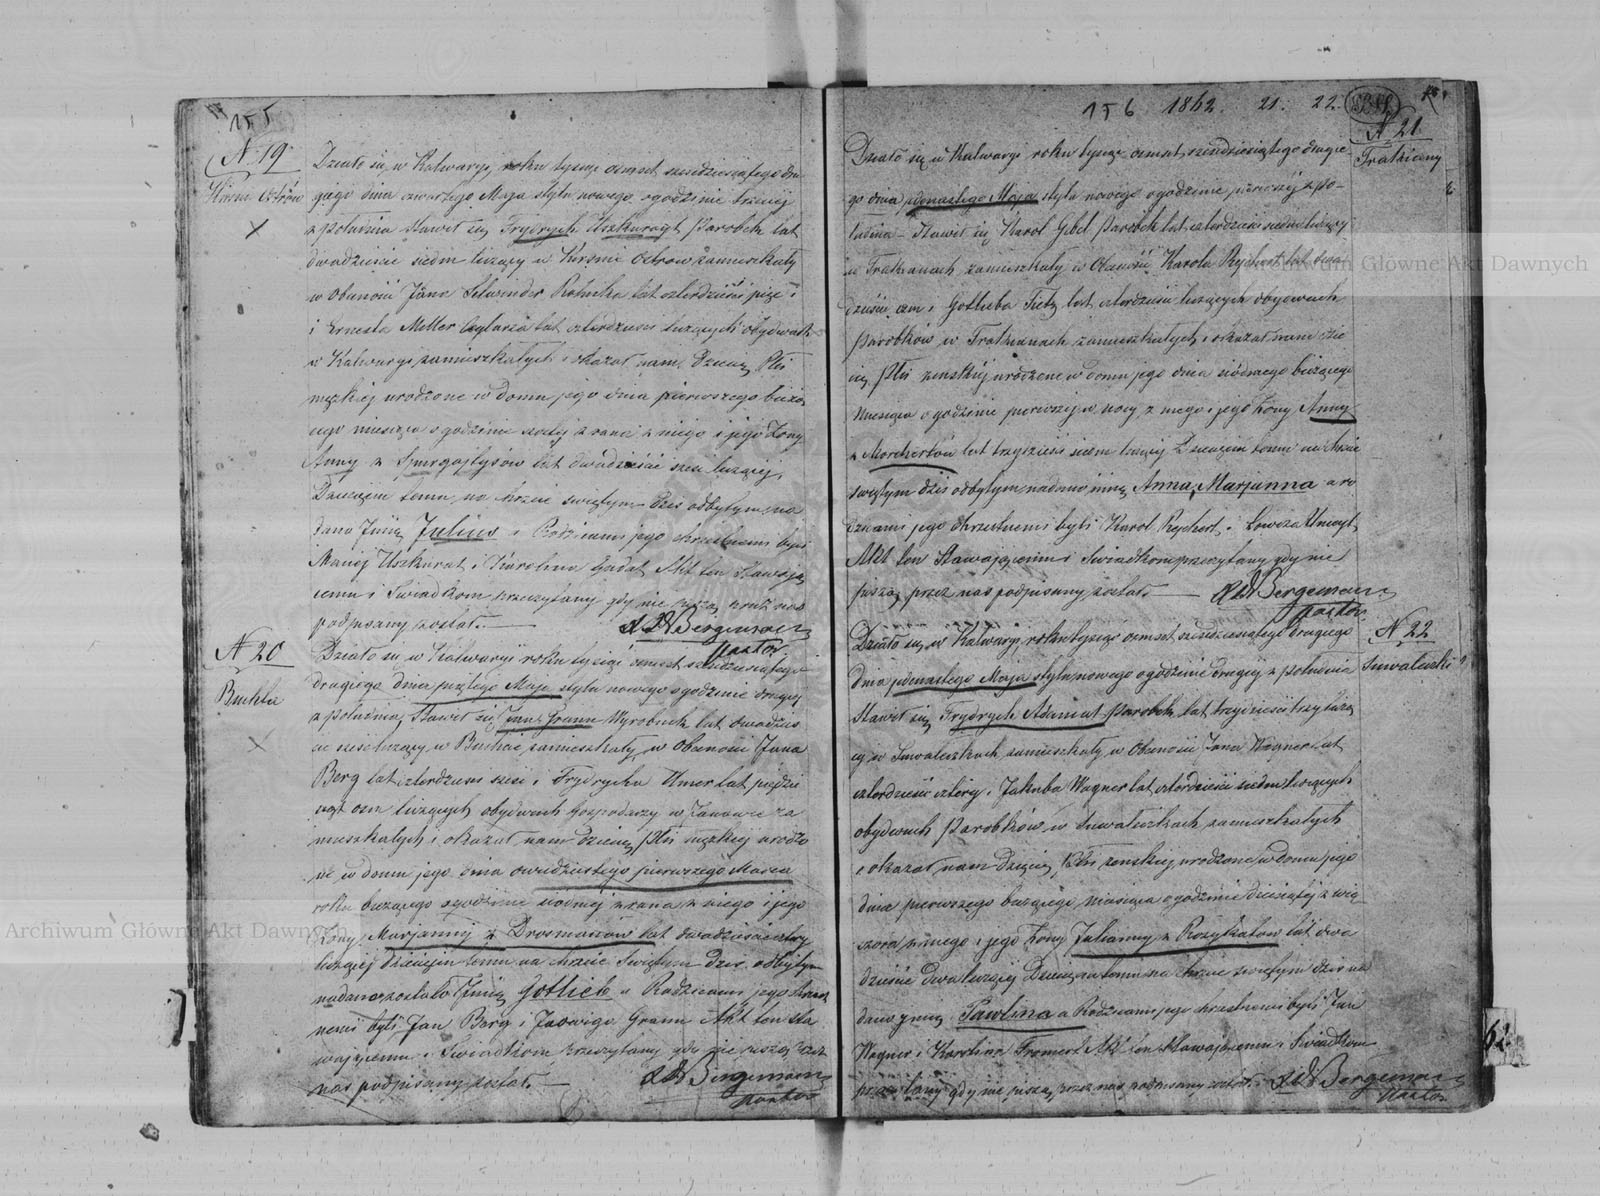 155
N 19
Kirsni Ostrów
Działo się w Kalwaryi roku tysiąc ośmset sześćdziesiątego dru
giego dnia czwartego Maja stylu nowego o godzinie trzeciej
z południa Stawił się Frydrych Uszkurayt Parobek lat
dwadzieścia siedm liczący w Kirsnie Ostrow zamieszkały
w Obecności Jana Rolnika lat czterdzieści pięć i
i Ernesta Meller lat czterdzieści liczących obydwóch
w Kalwaryi zamieszkałych i okazał nam Dziecię Płci
męzkiej urodzone w domu jego dnia pierwszego bieżą
cego miesiąca o godzinie szóstej z rana z niego i jego Żony
Anny z lat dwadzieścia sześć liczącej,
Dziecięciu temu na Chrzcie świętym dziś odbytym na
dano Imię Julius a Rodzicami jego chrzestnemi byli
Maciej Uszkurat i Karolina Gudat Akt ten Stawają
cemu i Świadkom przeczytany gdy nie piszą przez nas
podpisany został.
Bergemann
Pastor
N 20
Buchta
Działo się w Kalwaryi roku tysiąc ośmset sześćdziesiątego
drugiego dnia piątego Maja stylu nowego o godzinie drugiej
z południa, Stawił się Jan Gramm Wyrobnik lat dwadzieś
cia sześć liczący w Buchcie zamieszkały, w Obecności Jana
Berg lat czterdzieści sześć i Frydrycha Umer lat pięćdzie
siąt ośm liczących obydwóch Gospodarzy w Janowie za
mieszkałych i okazał nam dziecię Płci męzkiej urodzo
ne w domu jego dnia dwudziestego pierwszego Marca
roku bieżącego o godzinie siódmej z rana z niego i jego
Żony Marjanny z lat dwadzieścia cztery
liczącej dziecięciu temu na Chrzcie Świętym dziś odbytym
nadano zostało Imię Gotlieb a Rodzicami jego Chrzest
nemi byli Jan Berg i Jadwiga Gramm Akt ten Sta
wającemu i Świadkom przeczytany gdy nie piszą przez
nas podpisany został
Bergemann
Pastor
156 1862. 21. 22.
N 21
Trakiany
Działo się w Kalwaryi roku tysiąc ośmset sześćdziesiątego drugie
go dnia jedenastego Maja stylu nowego o godzinie pierwszej z po
łudnia Stawił się Karol Gebel Parobek lat czterdzieści siedm liczący
w Trakianach zamieszkały w Obecności Karola Reychert lat dwa
dzieścia ośm i Gotlieba Tietz lat czterdzieści liczących obydwóch
Parobków w Trakianach zamieszkałych i okazał nam dzie
cię Płci żenskiej urodzone w domu jego dnia siódmego bieżącego
miesiąca o godzinie pierwszej w nocy z niego i jego Żony Anny
z Morchertów lat trzydzieści siedm liczącej Dziecięciu temu na Chrzcie
świętym dziś odbytym nadano imię Anna, Marjanna a ro
dzicami jego chrzestnemi byli Karol Reychert i Lowiza
Akt ten Stawającemu i Świadkom przeczytany gdy nie
piszą przez nas podpisany został
Bergemann
Pastor
N 22
Suwaliszki
Działo się w Kalwaryi roku tysiąc ośmset sześćdziesiątego drugiego
dnia jedenastego Maja stylu nowego o godzinie drugiej z południa
Stawił się Frydrych Adamat Parobek lat trzydzieści trzy liczą
cy w Suwaliszkach zamieszkały w Obecności Jana Wagner lat
czterdzieści cztery i Jakuba Wagner lat czterdzieści siedm liczących
obydwóch Parobków w Suwaliszkach zamieszkałych
i okazał nam Dziecię Płci żenskiej urodzone w domu jego
dnia pierwszego bieżącego miesiąca o godzinie dziesiątej z wie
czora z niego i jego Żony Julianny z Roszykatów lat dwa
dzieścia dwa liczącej Dziecięciu temu na Chrzcie świętym dziś na
dano imię Pawlina a Rodzicami jego chrzestnemi byli Jan
Wagner i Karolina Fromert Akt ten Stawającemu i Świadkom
przeczytany gdy nie piszą, przez nas podpisany został.
Bergemann
Pastor
62
Archiwum Główne Akt Dawnych
Archiwum Główne Akt Dawnych